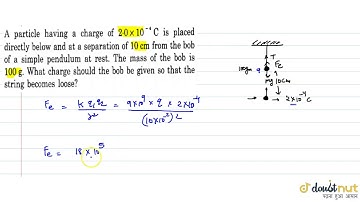 A particle having a charge of 2·0 × 10⁻⁴ C is placed
directly below and at a separation of 10 cm from the bob
of a simple pendulum at rest. The mass of the bob is
100 g. What charge should the bob be given so that the
string becomes loose?
T
Fe
100gm q
mg 10cm
2×10⁻⁴ C
Fe = k q₁ q₂ / r² = 9×10⁹ × q × 2×10⁻⁴ / (10×10⁻²)²
Fe = 18 × 10⁵
doubtnut